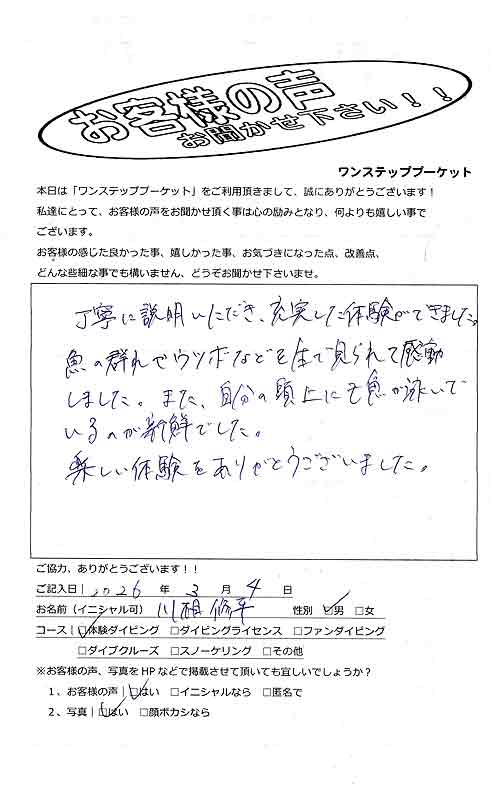 お客様の声
お聞かせ下さい!!
ワンステッププーケット
本日は「ワンステッププーケット」をご利用頂きまして、誠にありがとうございます!
私達にとって、お客様の声をお聞かせ頂く事は心の励みとなり、何よりも嬉しい事で
ございます。
お客様の感じた良かった事、嬉しかった事、お気づきになった点、改善点、
どんな些細な事でも構いません、どうぞお聞かせ下さいませ。
丁寧に説明いただき、充実した体験ができました。
魚の群れやウツボなどを生で見られて感動
しました。また、自分の頭上にも魚が泳いで
いるのが新鮮でした。
楽しい体験をありがとうございました。
ご協力、ありがとうございます!!
ご記入日| 2026 年 3 月 4 日
お名前(イニシャル可) 川相 修平 性別 ☑男 □女
コース| ☑体験ダイビング □ダイビングライセンス □ファンダイビング
□ダイブクルーズ □スノーケリング □その他
※お客様の声、写真をHPなどで掲載させて頂いても宜しいでしょうか?
1、お客様の声|☑はい □イニシャルなら □匿名で
2、写真|☑はい □顔ボカシなら